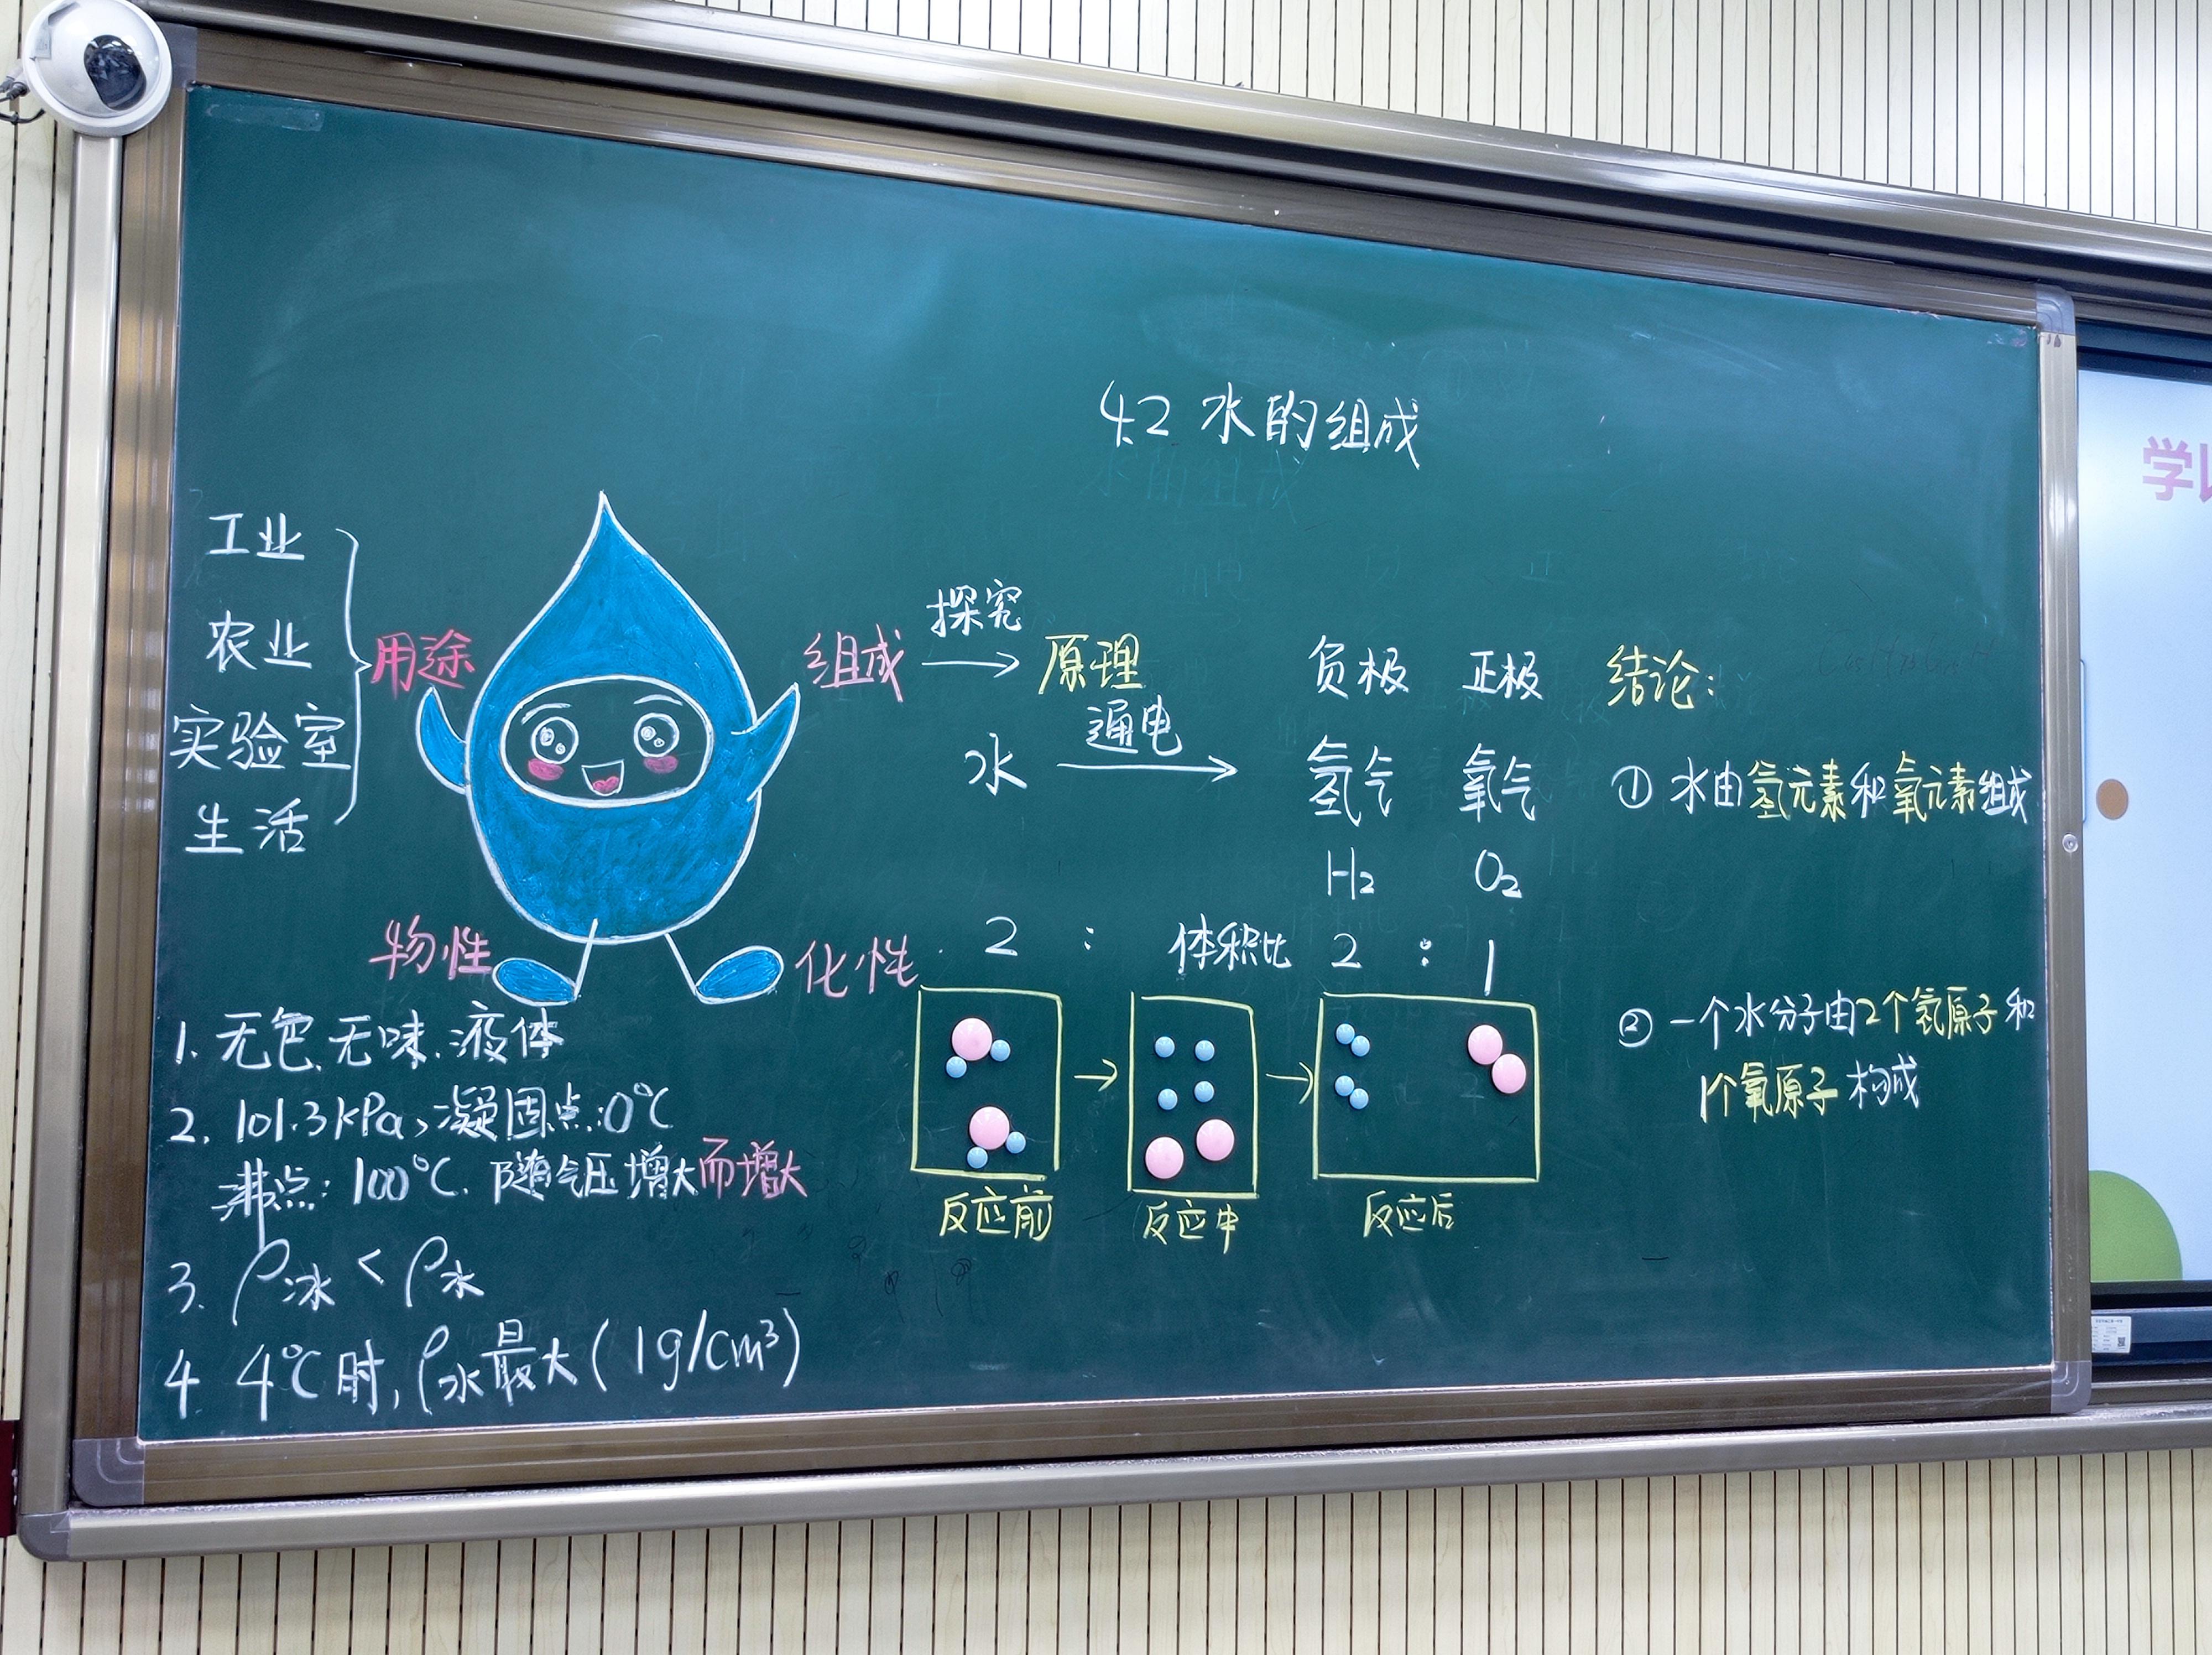 4.2 水的组成
工业
农业
实验室
生活
用途
组成
探究
原理
水
通电
负极 正极
氢气 氧气
H₂ O₂
2 : 体积比 2 : 1
结论:
① 水由氢元素和氧元素组成
② 一个水分子由2个氢原子和
1个氧原子构成
物性
1. 无色、无味、液体
2. 101.3kPa,凝固点:0℃
沸点:100℃. 随气压增大而增大
3. ρ冰 < ρ水
4 4℃时,ρ水最大(1g/cm³)
化性
反应前
反应中
反应后
学